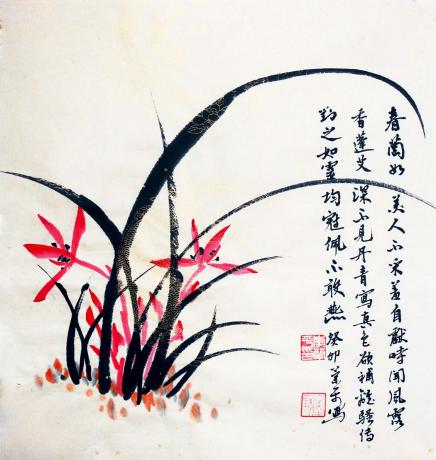 春蘭如美人不采羞自獻時聞風露
香蓬艾深不見丹青寫真色欲補離騷傳
對之如靈均冠佩不敢燕 癸卯